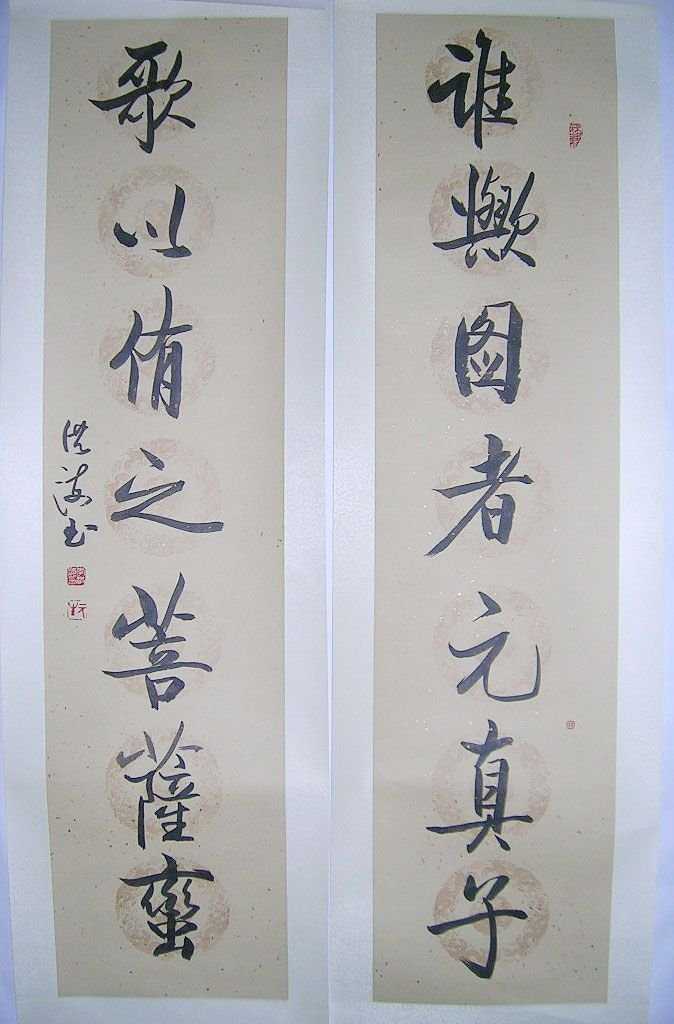 谁欤图者元真子
歌以侑之菩萨蛮
洪波书